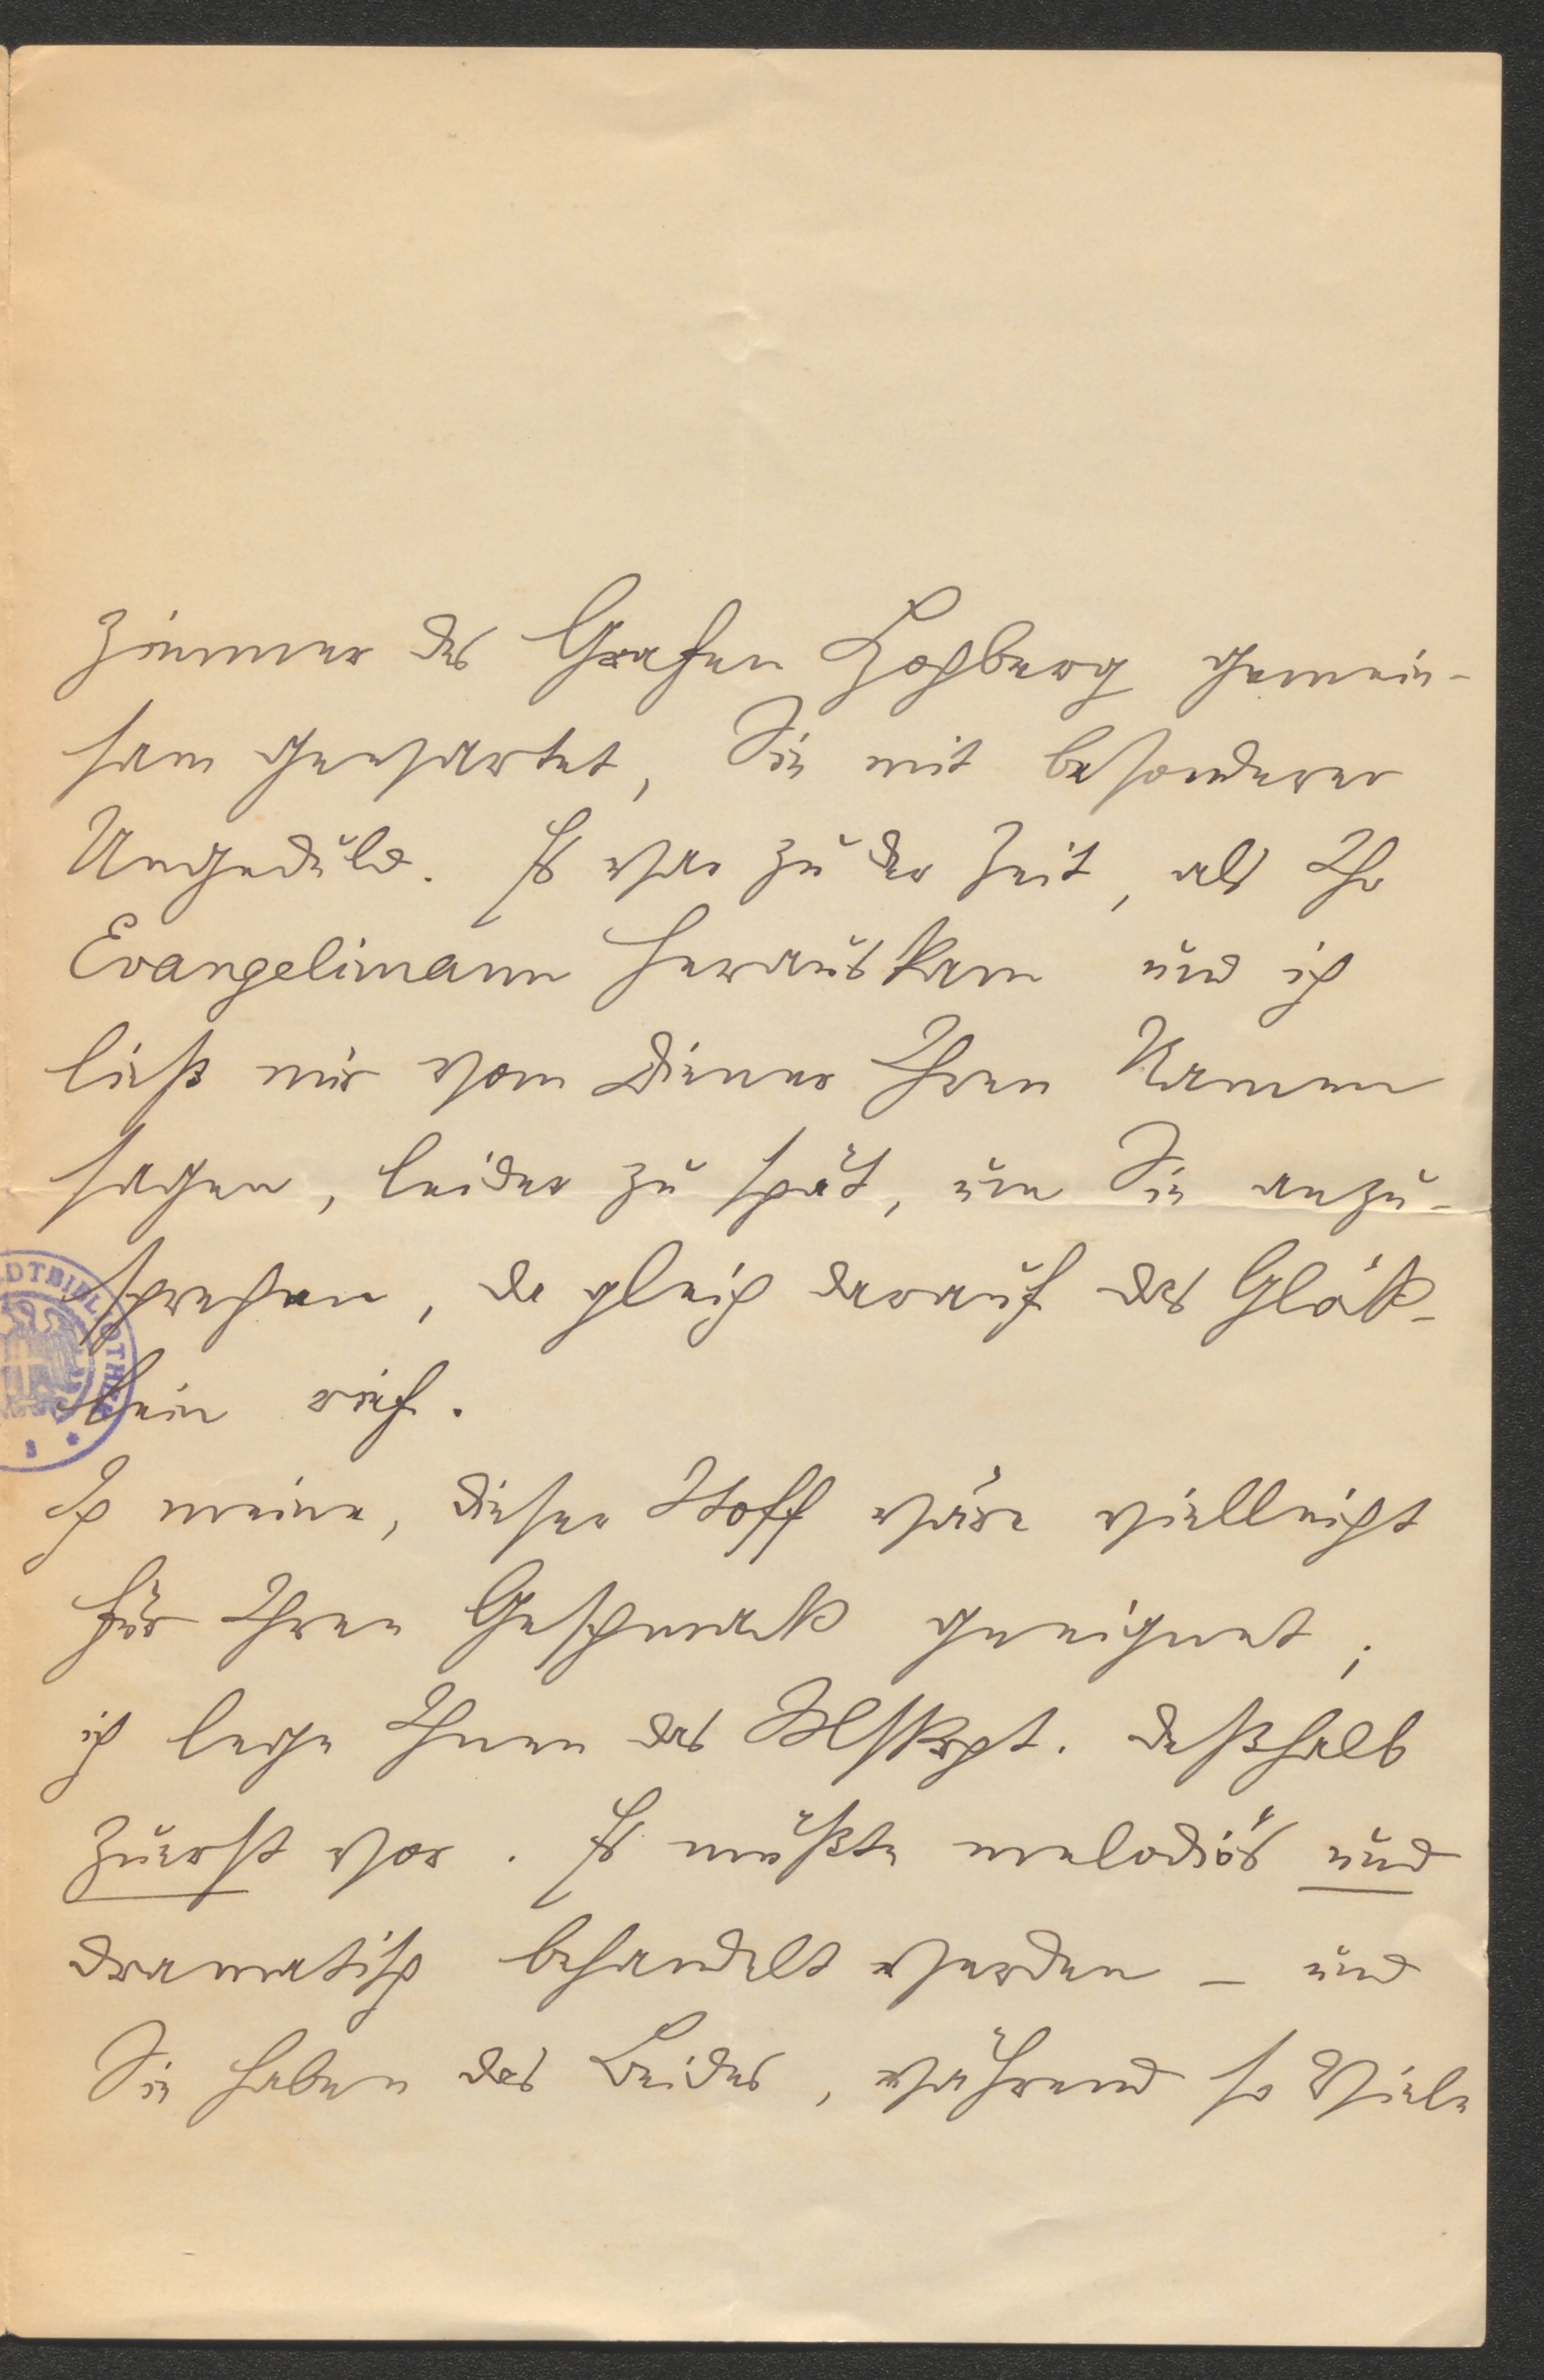 Zimmer des Grafen Hochberg gemein-
sam gewartet, Sie mit besonderer
Ungeduld. Es war zu der Zeit, als Ihr
Evangelimann herauskam und ich
ließ mir vom Diener Ihren Namen
sagen, leider zu spät, um Sie anzu-
sprechen, da gleich darauf das Glöck-
lein rief.
Ich meine, dieser Stoff wäre vielleicht
für Ihren Geschmack geeignet;
ich lege Ihnen das Mskrpt. deßhalb
zuerst vor. Es müßte melodiös und
dramatisch behandelt werden – und
Sie haben das Beides, während so Viele